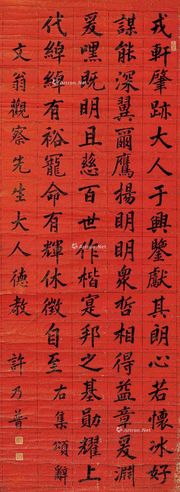 戎軒肇跡大人于興鑒獻其朗心若懷冰好
謀能深翼爾鷹揚明明衆哲相得益章爰淵
爰嘿既明且慈百世作楷寔邦之基勛耀上
代綽綽有裕寵命有輝休徵自至 右集頌辭
文翁觀察先生大人德教 許乃普